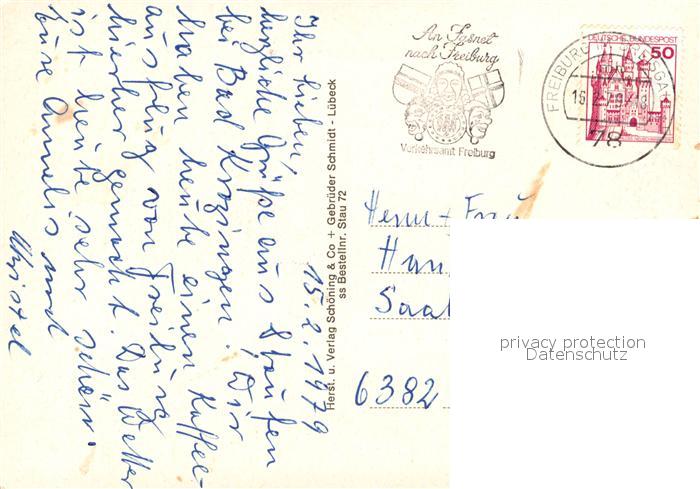 15.2.1979
Ihr Lieben,
herzliche Grüße aus Staufen
bei Bad Krozingen. Wir
haben heute einen Kaffee-
ausflug von Freiburg
hierher gemacht. Das Wetter
ist heute sehr schön.
Eure Annelis und
Christel
Herst. u. Verlag Schöning & Co + Gebrüder Schmidt - Lübeck
ss Bestellnr. Stau 72
An Fasnet
nach Freiburg
Verkehrsamt Freiburg
FREIBURG
15.2.79
78
DEUTSCHE BUNDESPOST
50
Herrn + Frau
Han
Saal
6382
privacy protection
Datenschutz